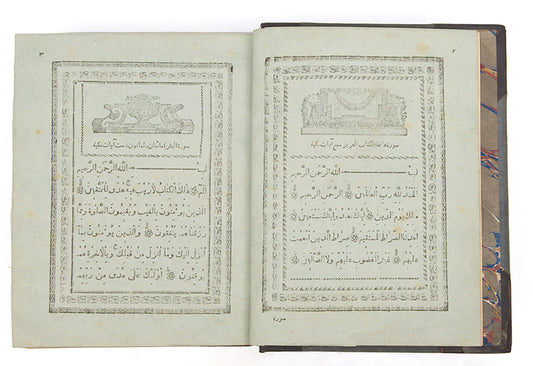 ٢
سورة فاتحة الكتاب العزيز سبع آيات مكية
بسم الله الرحمن الرحيم
الحمد لله رب العالمين الرحمن الرحيم
مالك يوم الدين إياك نعبد وإياك نستعين
اهدنا الصراط المستقيم صراط الذين أنعمت
عليهم غير المغضوب عليهم ولا الضالين
سورة
٣
سورة البقرة مائتان وثمانون آيات
بسم الله الرحمن الرحيم
الم ذلك الكتاب لا ريب فيه هدى للمتقين
الذين يؤمنون بالغيب ويقيمون الصلوة ومما
رزقناهم ينفقون والذين يؤمنون بما
أنزل إليك وما أنزل من قبلك وبالآخرة هم
يوقنون أولئك على هدى من ربهم